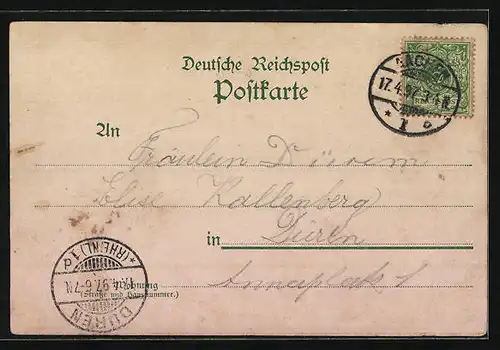 Deutsche Reichspost
Postkarte
AACHEN
17.4.97.3-4N
* 1 o
An
Fräulein
Elise Kallenberg
in Düren
Annaplatz 1
Wohnung
(Straße und Hausnummer.)
DÜREN
17.4.97.6-7N
*(RHEINL.) 1 c